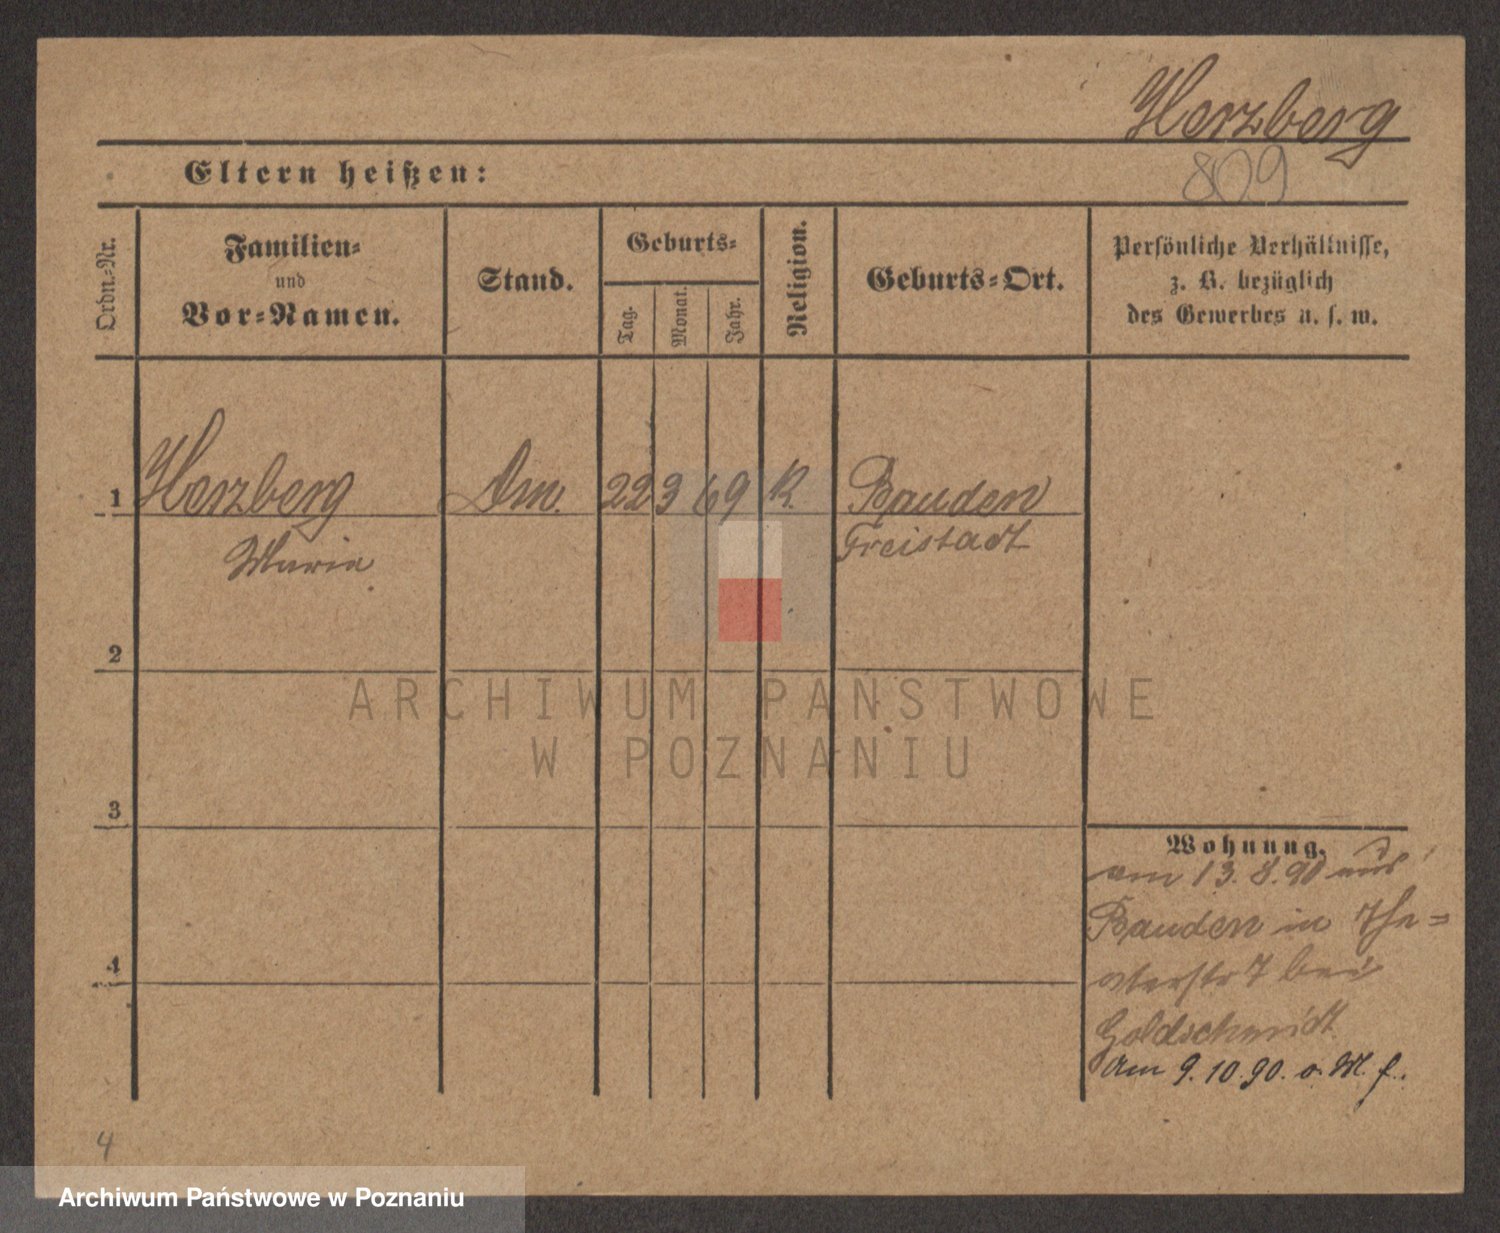 Herzberg
809
Eltern heißen:
Ordn.-Nr.
Familien-
und
Vor-Namen.
Stand.
Geburts-
Tag.
Monat.
Jahr.
Religion.
Geburts-Ort.
Persönliche Verhältnisse,
z. B. bezüglich
des Gewerbes u. s. w.
1 Herzberg 22 3 69 K. Bauden
Maria Freistadt
2
ARCHIWUM PAŃSTWOWE
W POZNANIU
3
Wohnung.
am 13. 8. 90 aus
Bauden in The-
aterstr 7 bei
Goldschmidt
Am 9. 10. 90. o. M. f.
4
4
Archiwum Państwowe w Poznaniu